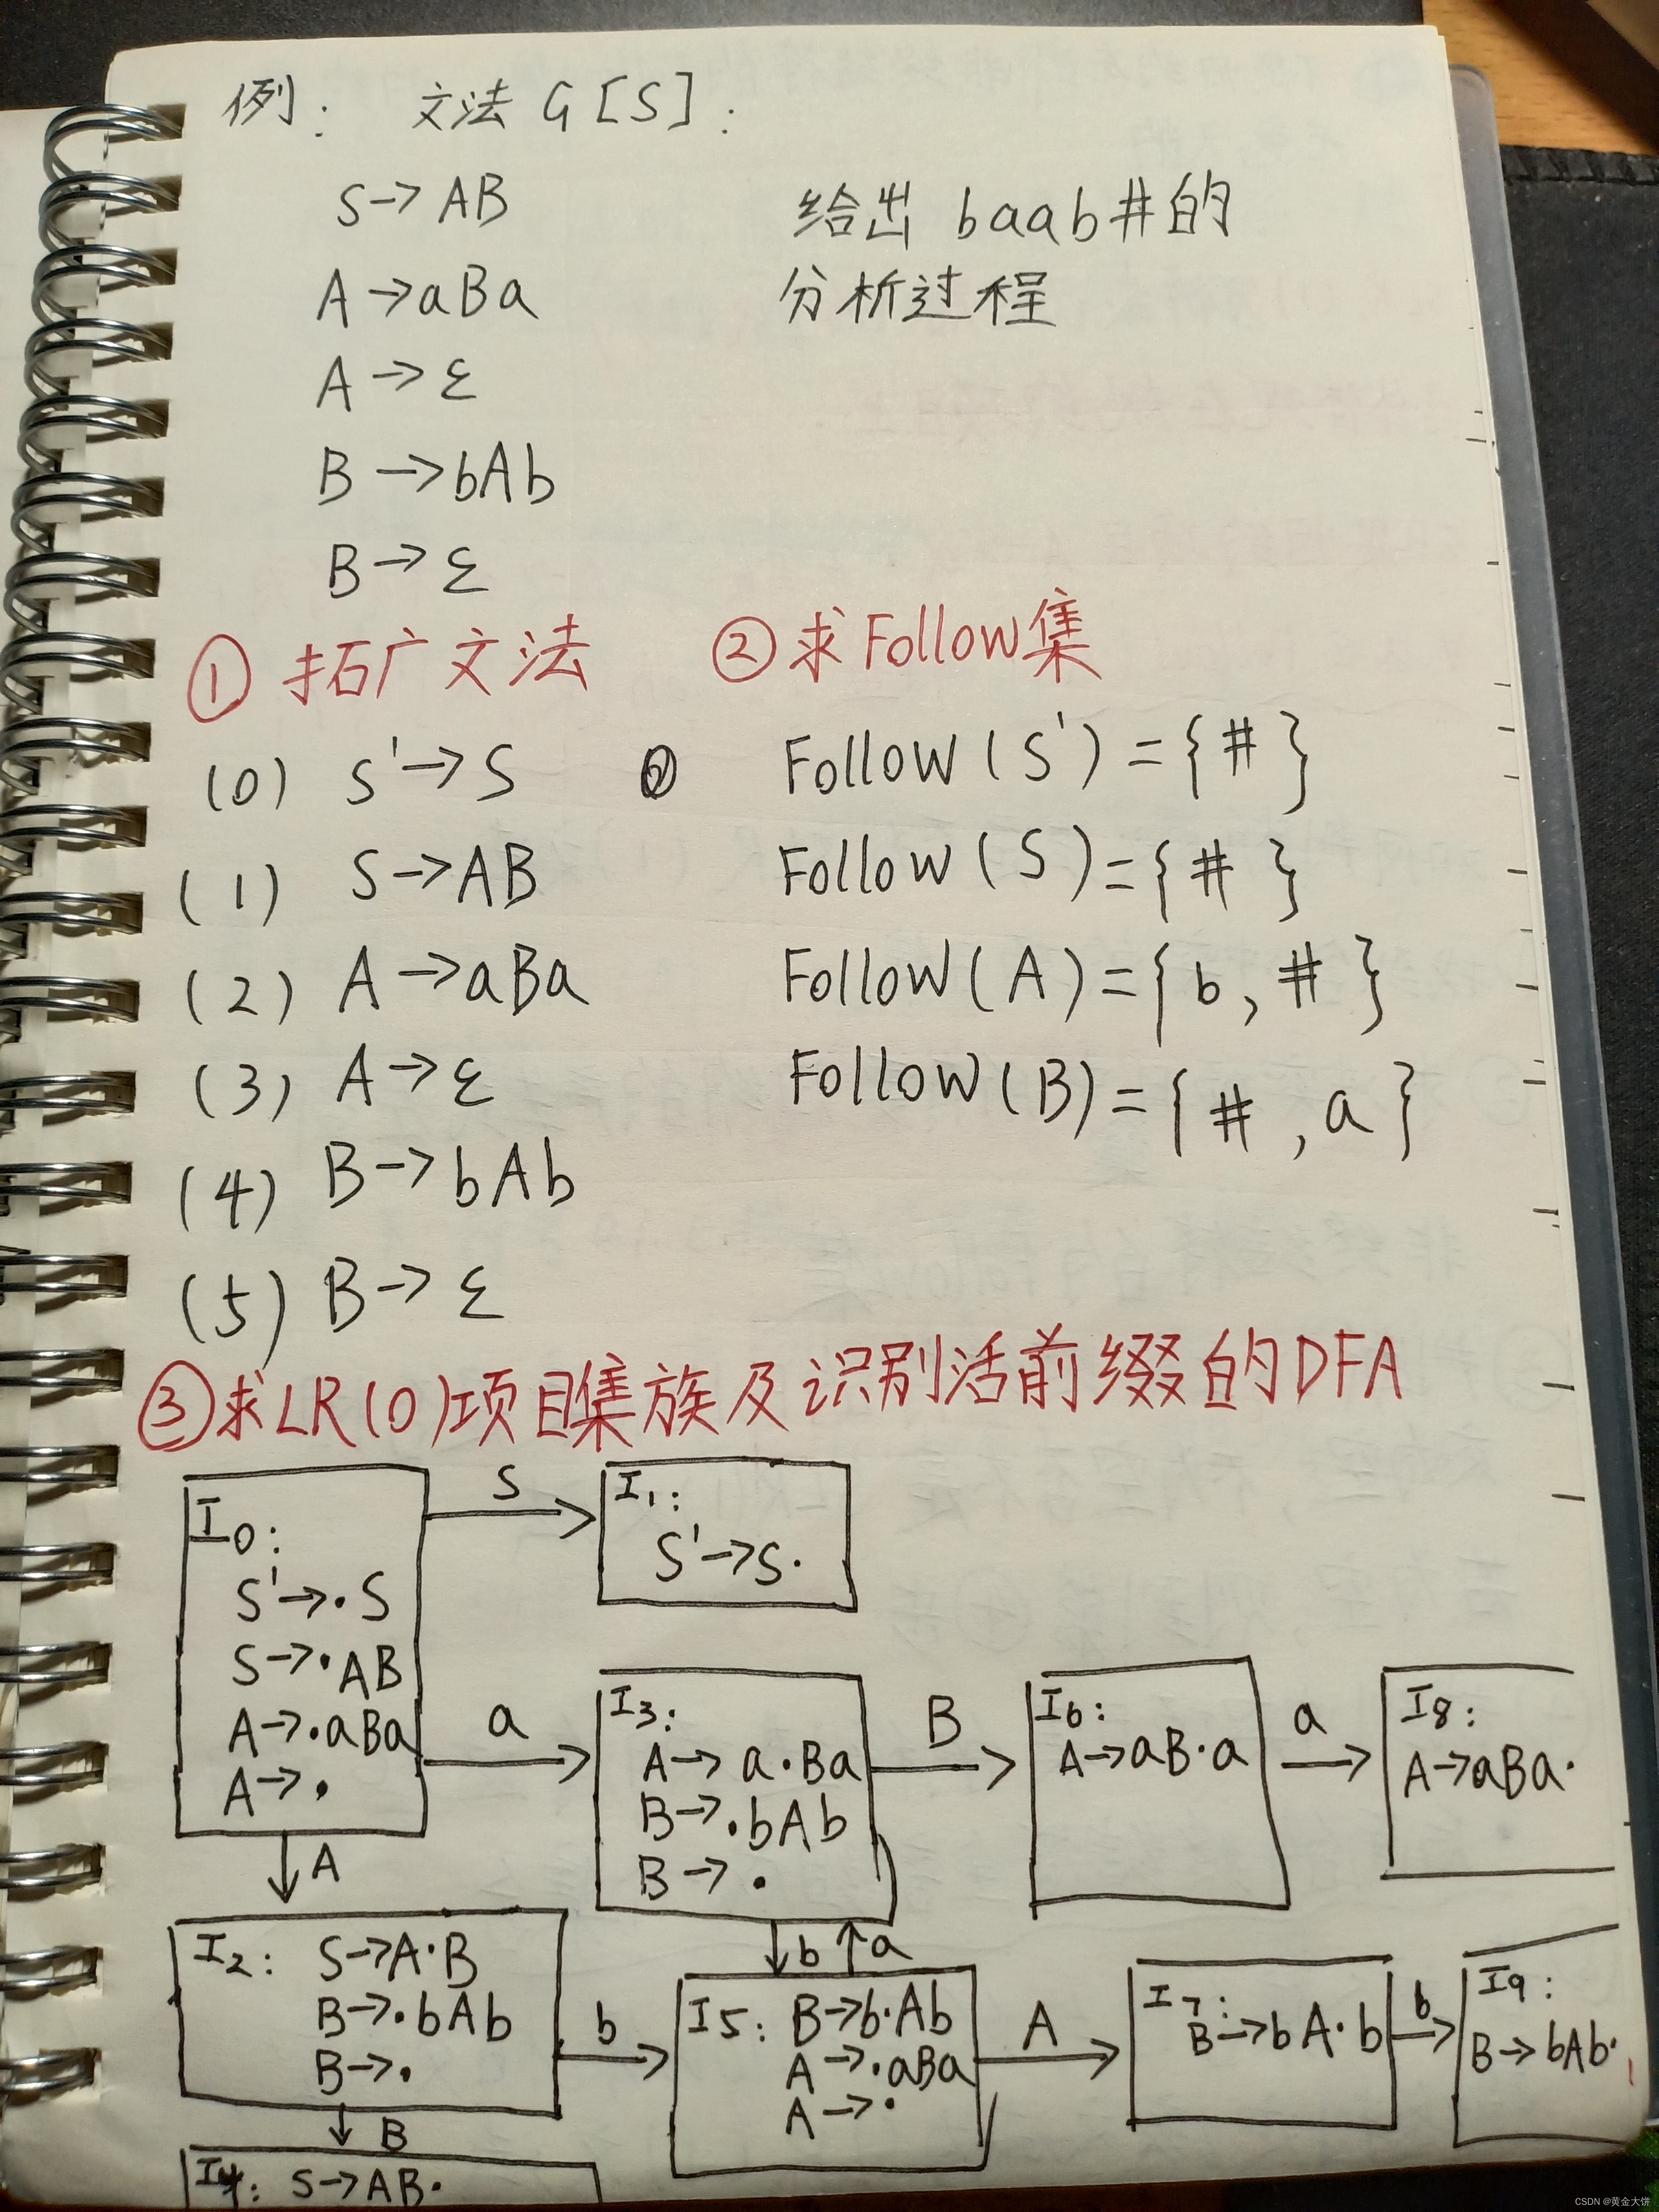 例: 文法 G[S]:
S→AB
给出 baab#的
A→aBa
分析过程
A→ε
B→bAb
B→ε
① 拓广文法
② 求Follow集
(0) S'→S
Follow(S')={#}
(1) S→AB
Follow(S)={#}
(2) A→aBa
Follow(A)={b,#}
(3) A→ε
Follow(B)={#,a}
(4) B→bAb
(5) B→ε
③求LR(0)项目集族及识别活前缀的DFA
I0:
S'→·S
S→·AB
A→·aBa
A→·
S
I1:
S'→S·
a
I3:
A→a·Ba
B→·bAb
B→·
B
I6:
A→aB·a
a
I8:
A→aBa·
A
b
a
I2: S→A·B
B→·bAb
B→·
b
I5: B→b·Ab
A→·aBa
A→·
A
I7:
B→bA·b
b
I9:
B→bAb·
B
I4: S→AB·
CSDN @黄金大饼